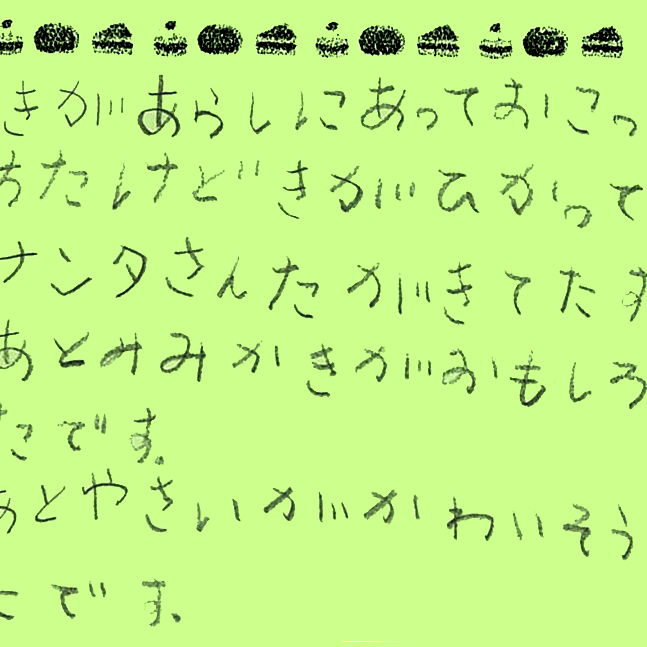 きががあらしにあっておこっ
ちたけどきががひかって
ナンタさんたががきてたす
あとみみかきががおもしろ
たです。
あとやさいががかわいそう
たです。